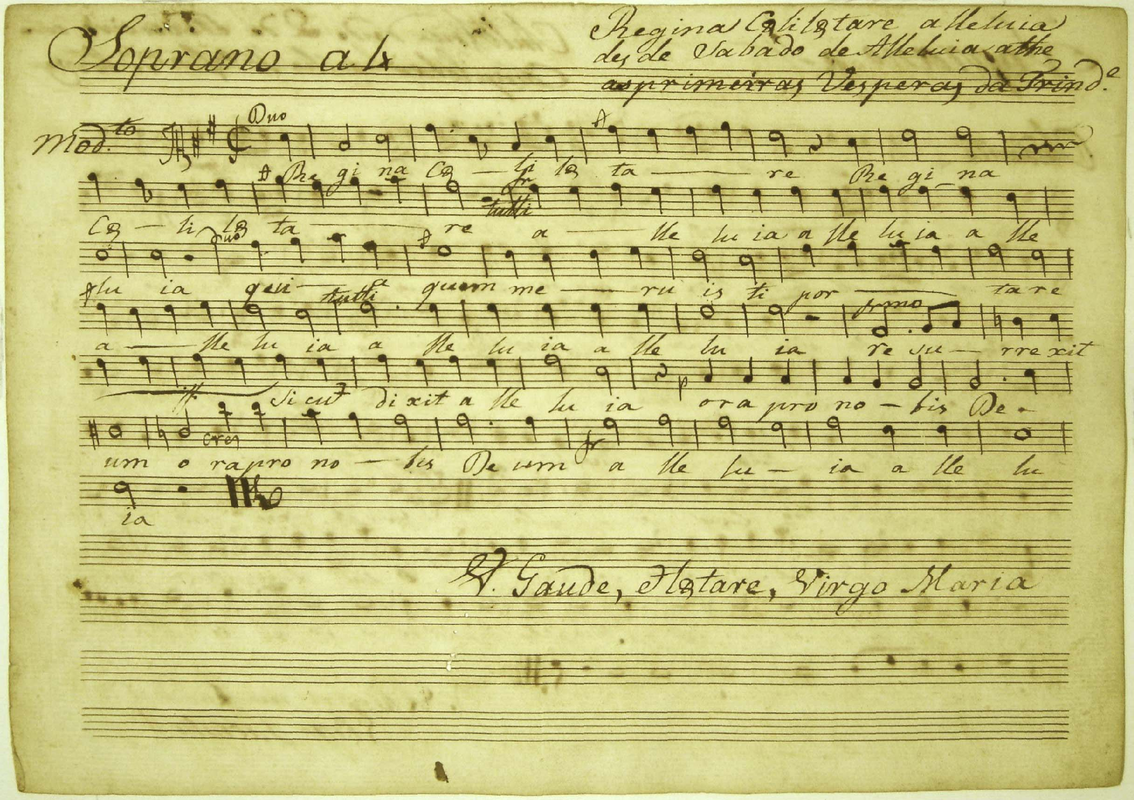 Soprano a 4
Regina Cæli lætare alleluia
desde Sabado de Alleluia athe
as primeiras Vesperas da Trind.e
Mod.to
Duo
Re gi na Cæ — li læ ta — re Re gi na
tutti
Cæ — li læ ta — re a — lle lu ia a lle lu ia a lle
Duo
lu ia qui — quem me — ru is ti por — ta re
tutti
a — lle lu ia a lle lu ia a lle lu ia re su — rre xit
si cut di xit a lle lu ia ora pro no — bis De -
cres
um o ra pro no — bis De um a lle lu — ia a lle lu
ia
V. Gaude, et lætare, Virgo Maria